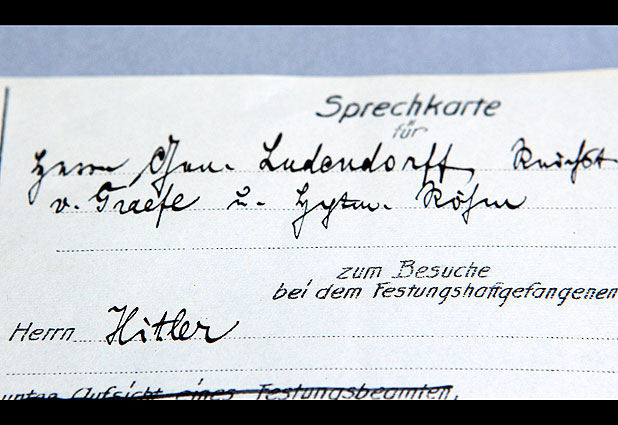 Sprechkarte
für
Herrn Gen. Ludendorff, Reichst
v. Graefe u. Hptm. Röhm
zum Besuche
bei dem Festungshaftgefangenen
Herrn Hitler
unter Aufsicht eines Festungsbeamten,